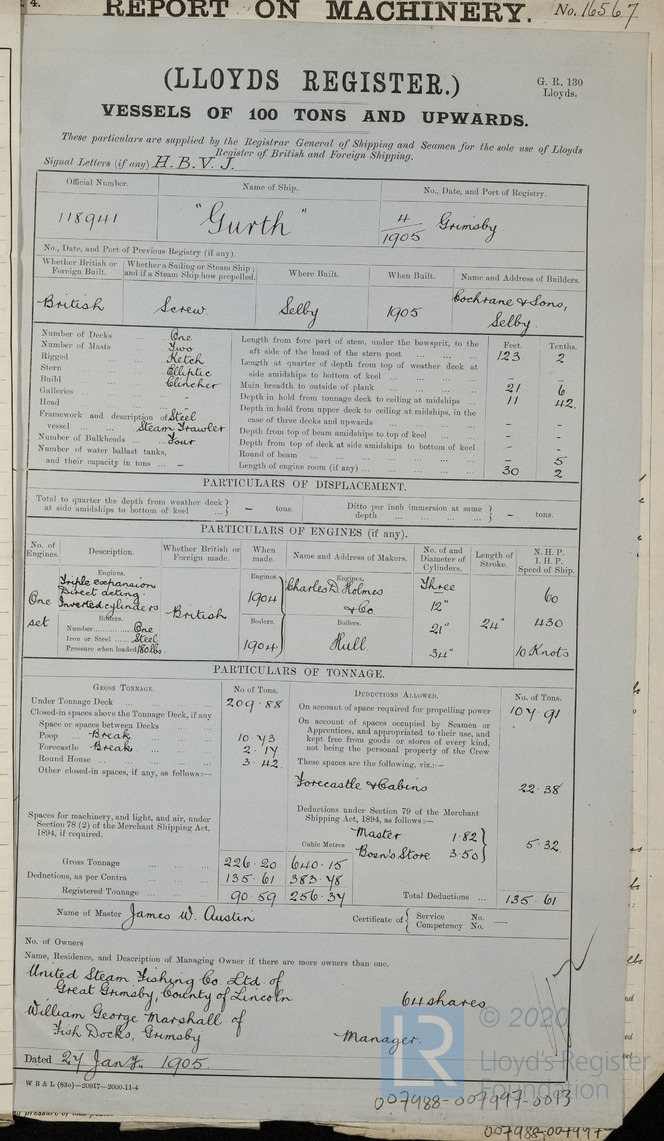 4.
REPORT ON MACHINERY. No. 16567
(LLOYDS REGISTER.)
G. R. 130
Lloyds.
VESSELS OF 100 TONS AND UPWARDS.
These particulars are supplied by the Registrar General of Shipping and Seamen for the sole use of Lloyds
Register of British and Foreign Shipping.
Signal Letters (if any) H. B. V. J.
Official Number. Name of Ship. No., Date, and Port of Registry.
118941 "Gurth" 4/1905 Grimsby
No., Date, and Port of Previous Registry (if any).
Whether British or Foreign Built. Whether a Sailing or Steam Ship; and if a Steam Ship how propelled. Where Built. When Built. Name and Address of Builders.
British Screw. Selby 1905 Cochrane & Sons, Selby.
Number of Decks ... One
Number of Masts ... Two
Rigged ... Ketch
Stern ... Elliptic
Build ... Clincher
Galleries ... -
Head ... -
Framework and description of vessel ... Steel Steam Trawler
Number of Bulkheads ... Four
Number of water ballast tanks, and their capacity in tons ... -
Feet. Tenths.
Length from fore part of stem, under the bowsprit, to the aft side of the head of the stern post ... 123 2
Length at quarter of depth from top of weather deck at side amidships to bottom of keel ... - -
Main breadth to outside of plank ... 21 6
Depth in hold from tonnage deck to ceiling at midships ... 11 42
Depth in hold from upper deck to ceiling at midships, in the case of three decks and upwards ... - -
Depth from top of beam amidships to top of keel ... - -
Depth from top of deck at side amidships to bottom of keel - -
Round of beam ... - 5
Length of engine room (if any) ... 30 2
PARTICULARS OF DISPLACEMENT.
Total to quarter the depth from weather deck at side amidships to bottom of keel ... } - tons. Ditto per inch immersion at same depth ... } - tons.
PARTICULARS OF ENGINES (if any).
No. of Engines. Description. Whether British or Foreign made. When made. Name and Address of Makers. No. of and Diameter of Cylinders. Length of Stroke. N. H. P. I. H. P. Speed of Ship.
Engines. Engines. Engines.
One set Triple expansion Direct acting. Inverted cylinders British 1904 Charles D. Holmes & Co. Three 12" 21" 34" 24" 60 430 10 Knots
Boilers. Boilers. Boilers.
Number ... One
Iron or Steel ... Steel
Pressure when loaded 180 lbs. 1904 Hull.
PARTICULARS OF TONNAGE.
GROSS TONNAGE. No of Tons.
Under Tonnage Deck ... 209.88
Closed-in spaces above the Tonnage Deck, if any
Space or spaces between Decks ...
Poop - Break ... 10.73
Forecastle - Break ... 2.17
Round House ... 3.42
Other closed-in spaces, if any, as follows:—
Spaces for machinery, and light, and air, under Section 78 (2) of the Merchant Shipping Act, 1894, if required.
Cubic Metres
Gross Tonnage ... 226.20 640.15
Deductions, as per Contra ... 135.61 383.78
Registered Tonnage ... 90 59 256.37
DEDUCTIONS ALLOWED. No. of Tons.
On account of space required for propelling power 107.91
On account of spaces occupied by Seamen or Apprentices, and appropriated to their use, and kept free from goods or stores of every kind, not being the personal property of the Crew
These spaces are the following, viz.:—
Forecastle & Cabins 22.38
Deductions under Section 79 of the Merchant Shipping Act, 1894, as follows:—
Master 1.82
Bosn's Store 3.50 } 5.32
Total Deductions ... 135.61
Name of Master James W. Austin Certificate of { Service No. Competency No. —
No. of Owners
Name, Residence, and Description of Managing Owner if there are more owners than one.
United Steam Fishing Co. Ltd. of
Great Grimsby, County of Lincoln 64 shares
William George Marshall of
Fish Docks, Grimsby Manager.
Dated 27 Jany. 1905.
W B & L (83o)—20917—2000-11-4
© 2020
LR
Lloyd's Register
Foundation
007988-007997-0093